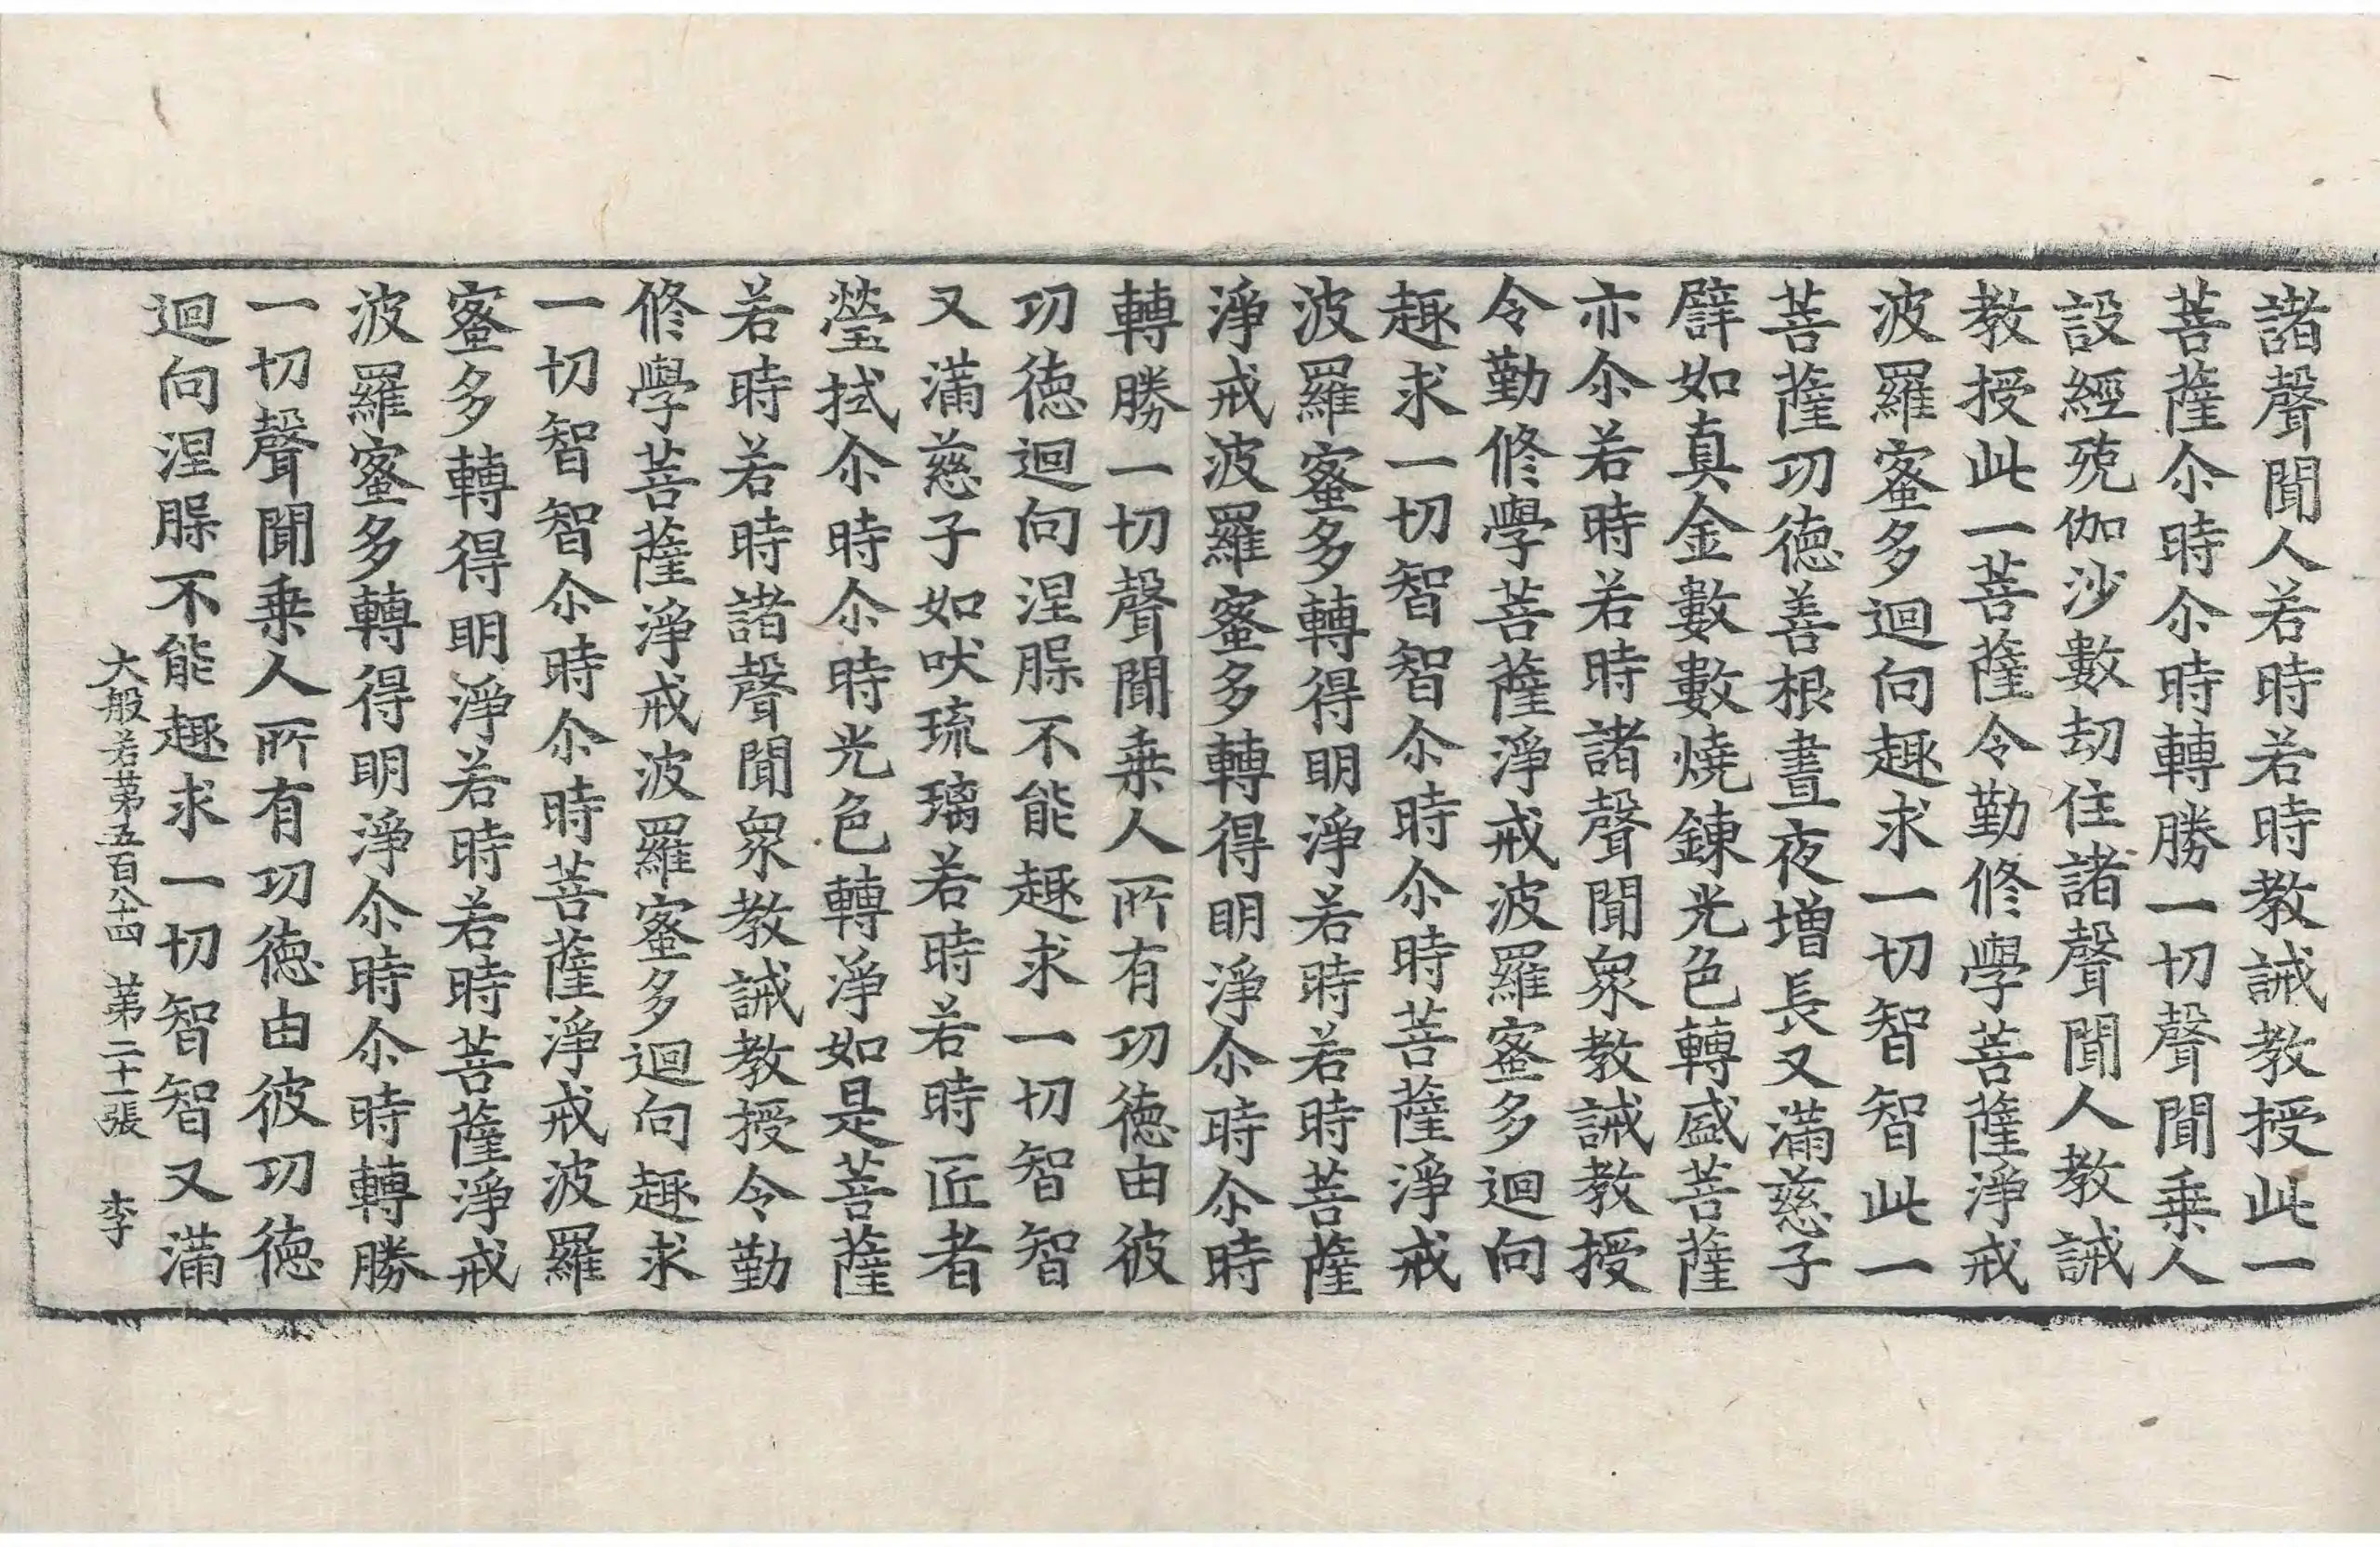 諸聲聞人若時若時教誡教授此一
菩薩尒時尒時轉勝一切聲聞乗人
設經殑伽沙數劫住諸聲聞人教誡
教授此一菩薩令勤修學菩薩淨戒
波羅蜜多迴向趣求一切智智此一
菩薩功德善根晝夜增長又滿慈子
譬如真金數數燒鍊光色轉盛菩薩
亦尒若時若時諸聲聞衆教誡教授
令勤修學菩薩淨戒波羅蜜多迴向
趣求一切智智尒時尒時菩薩淨戒
波羅蜜多轉得明淨若時若時菩薩
淨戒波羅蜜多轉得明淨尒時尒時
轉勝一切聲聞乗人所有功德由彼
功德迴向涅槃不能趣求一切智智
又滿慈子如吠琉璃若時若時匠者
瑩拭尒時尒時光色轉淨如是菩薩
若時若時諸聲聞衆教誡教授令勤
修學菩薩淨戒波羅蜜多迴向趣求
一切智智尒時尒時菩薩淨戒波羅
蜜多轉得明淨若時若時菩薩淨戒
波羅蜜多轉得明淨尒時尒時轉勝
一切聲聞乗人所有功德由彼功德
迴向涅槃不能趣求一切智智又滿
大般若苐五百八十四 苐二十一張 李